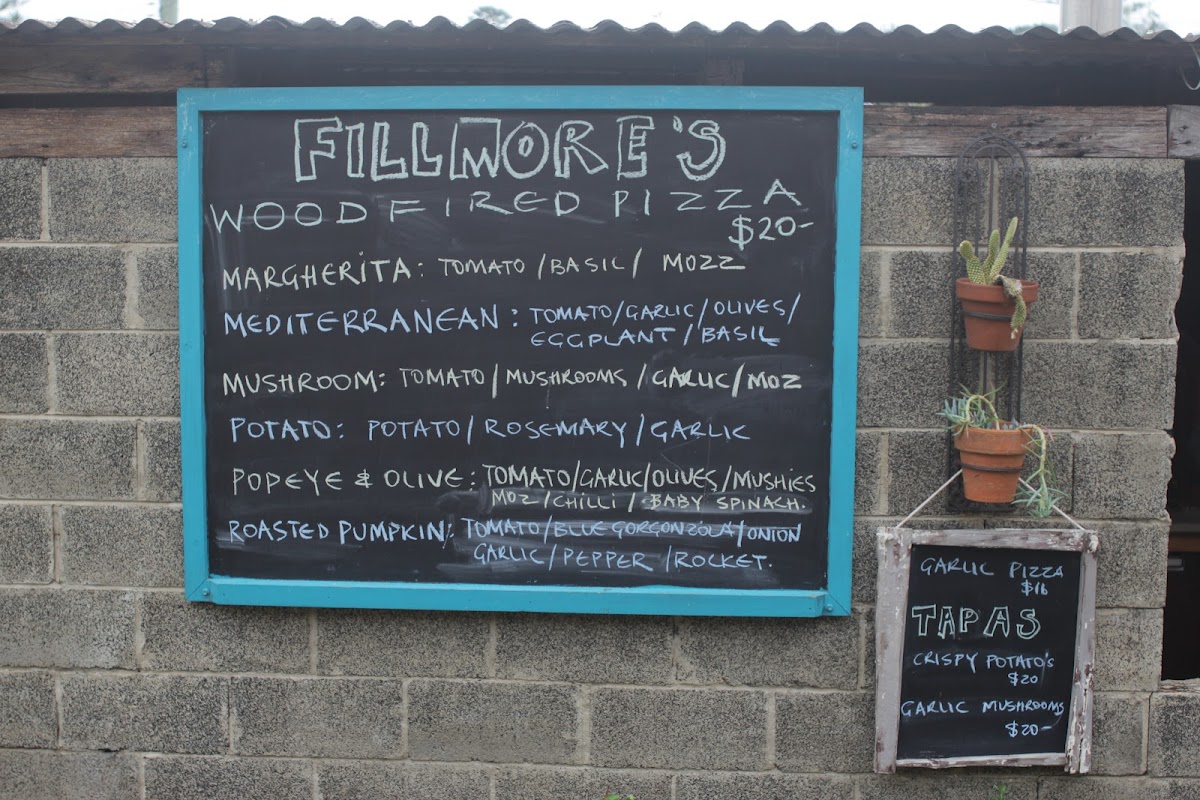 FILLMORE'S
WOODFIRED PIZZA
$20-
MARGHERITA: TOMATO/BASIL/ MOZZ
MEDITERRANEAN: TOMATO/GARLIC/OLIVES/
EGGPLANT/BASIL
MUSHROOM: TOMATO/MUSHROOMS/GARLIC/MOZ
POTATO: POTATO/ROSEMARY/GARLIC
POPEYE & OLIVE: TOMATO/GARLIC/OLIVES/MUSHIES
MOZ/CHILLI/BABY SPINACH.
ROASTED PUMPKIN: TOMATO/BLUE GORGONZOLA/ONION
GARLIC/PEPPER/ROCKET.
GARLIC PIZZA
$16
TAPAS
CRISPY POTATO'S
$20
GARLIC MUSHROOMS
$20-